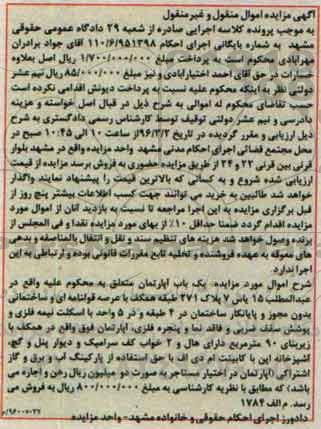 آگهی مزایده اموال منقول و غیر منقول
به موجب پرونده کلاسه اجرایی صادره از شعبه ۲۹ دادگاه عمومی حقوقی
مشهد به شماره بایگانی اجرای احکام ۱۱۰/۶/۹۵۱۳۹۸ آقای جواد برادران
مهرابادی محکوم است به پرداخت مبلغ ۱/۷۰۰/۰۰۰/۰۰۰ ریال اصل بعلاوه
خسارات در حق آقای احمد اختیارابادی و نیز مبلغ ۸۵/۰۰۰/۰۰۰ ریال نیم عشر
دولتی نظر به اینکه محکوم علیه نسبت به پرداخت دیونش اقدامی نکرده است
حسب تقاضای محکوم له اموالی به شرح ذیل در قبال اصل خواسته و هزینه
دادرسی و نیم عشر دولتی توقیف توسط کارشناس رسمی دادگستری به شرح
ذیل ارزیابی و مقرر گردیده در تاریخ ۹۶/۳/۲ از ساعت ۱۰ الی ۱۰:۴۵ صبح در
محل مجتمع قضائی اجرای احکام مدنی مشهد واحد مزایده واقع در مشهد بلوار
قرنی بین قرنی ۲۲ و ۲۴ از طریق مزایده حضوری به فروش برسد مزایده از قیمت
ارزیابی شده شروع و به کسانی که بالاترین قیمت را پیشنهاد نمایند واگذار
خواهد شد طالبین به خرید می توانند جهت کسب اطلاعات بیشتر پنج روز از
قبل برگزاری مزایده به این اجرا مراجعه تا نسبت به بازدید آنان از اموال مورد
مزایده اقدام گردد ضمنا حداقل ۱۰٪ از بهای مورد مزایده نقدا و فی المجلس از
برنده وصول خواهد شد هزینه های تنظیم سند و نقل و انتقال بالمناصفه و بدهی
های معوقه به عهده فروشنده و تخلیه تابع مقررات قانونی بوده و ارتباطی به این
اجرا ندارد
شرح اموال مورد مزایده: یک باب آپارتمان متعلق به محکوم علیه واقع در
عبدالمطلب ۱۵ یاس ۷ پلاک ۲۷۱ طبقه همکف با عرصه قولنامه ای و ساختمانی
بدون مجوز و پایانکار ساختمان در ۴ طبقه و در ۵ واحد با اسکلت نیمه فلزی و
پوشش سقف ضربی و فاقد نما و پنجره فلزی، آپارتمان فوق واقع در همکف با
زیربنای ۹۰ مترمربع دارای هال و ۲ خواب کف سرامیک و دیوار پنل و گچ،
آشپزخانه اپن با کابینت ام دی اف با حق استفاده از پارکینگ آب و برق و گاز
اشتراکی (آپارتمان در اختیار مستاجر به صورت دو میلیون ریال رهن و اجاره می
باشد) که مطابق با نظریه کارشناسی به مبلغ ۸۰۰/۰۰۰/۰۰۰ ریال به فروش می
رسد. م الف ۱۷۸۴
دادورز اجرای احکام حقوقی و خانواده مشهد- واحد مزایده